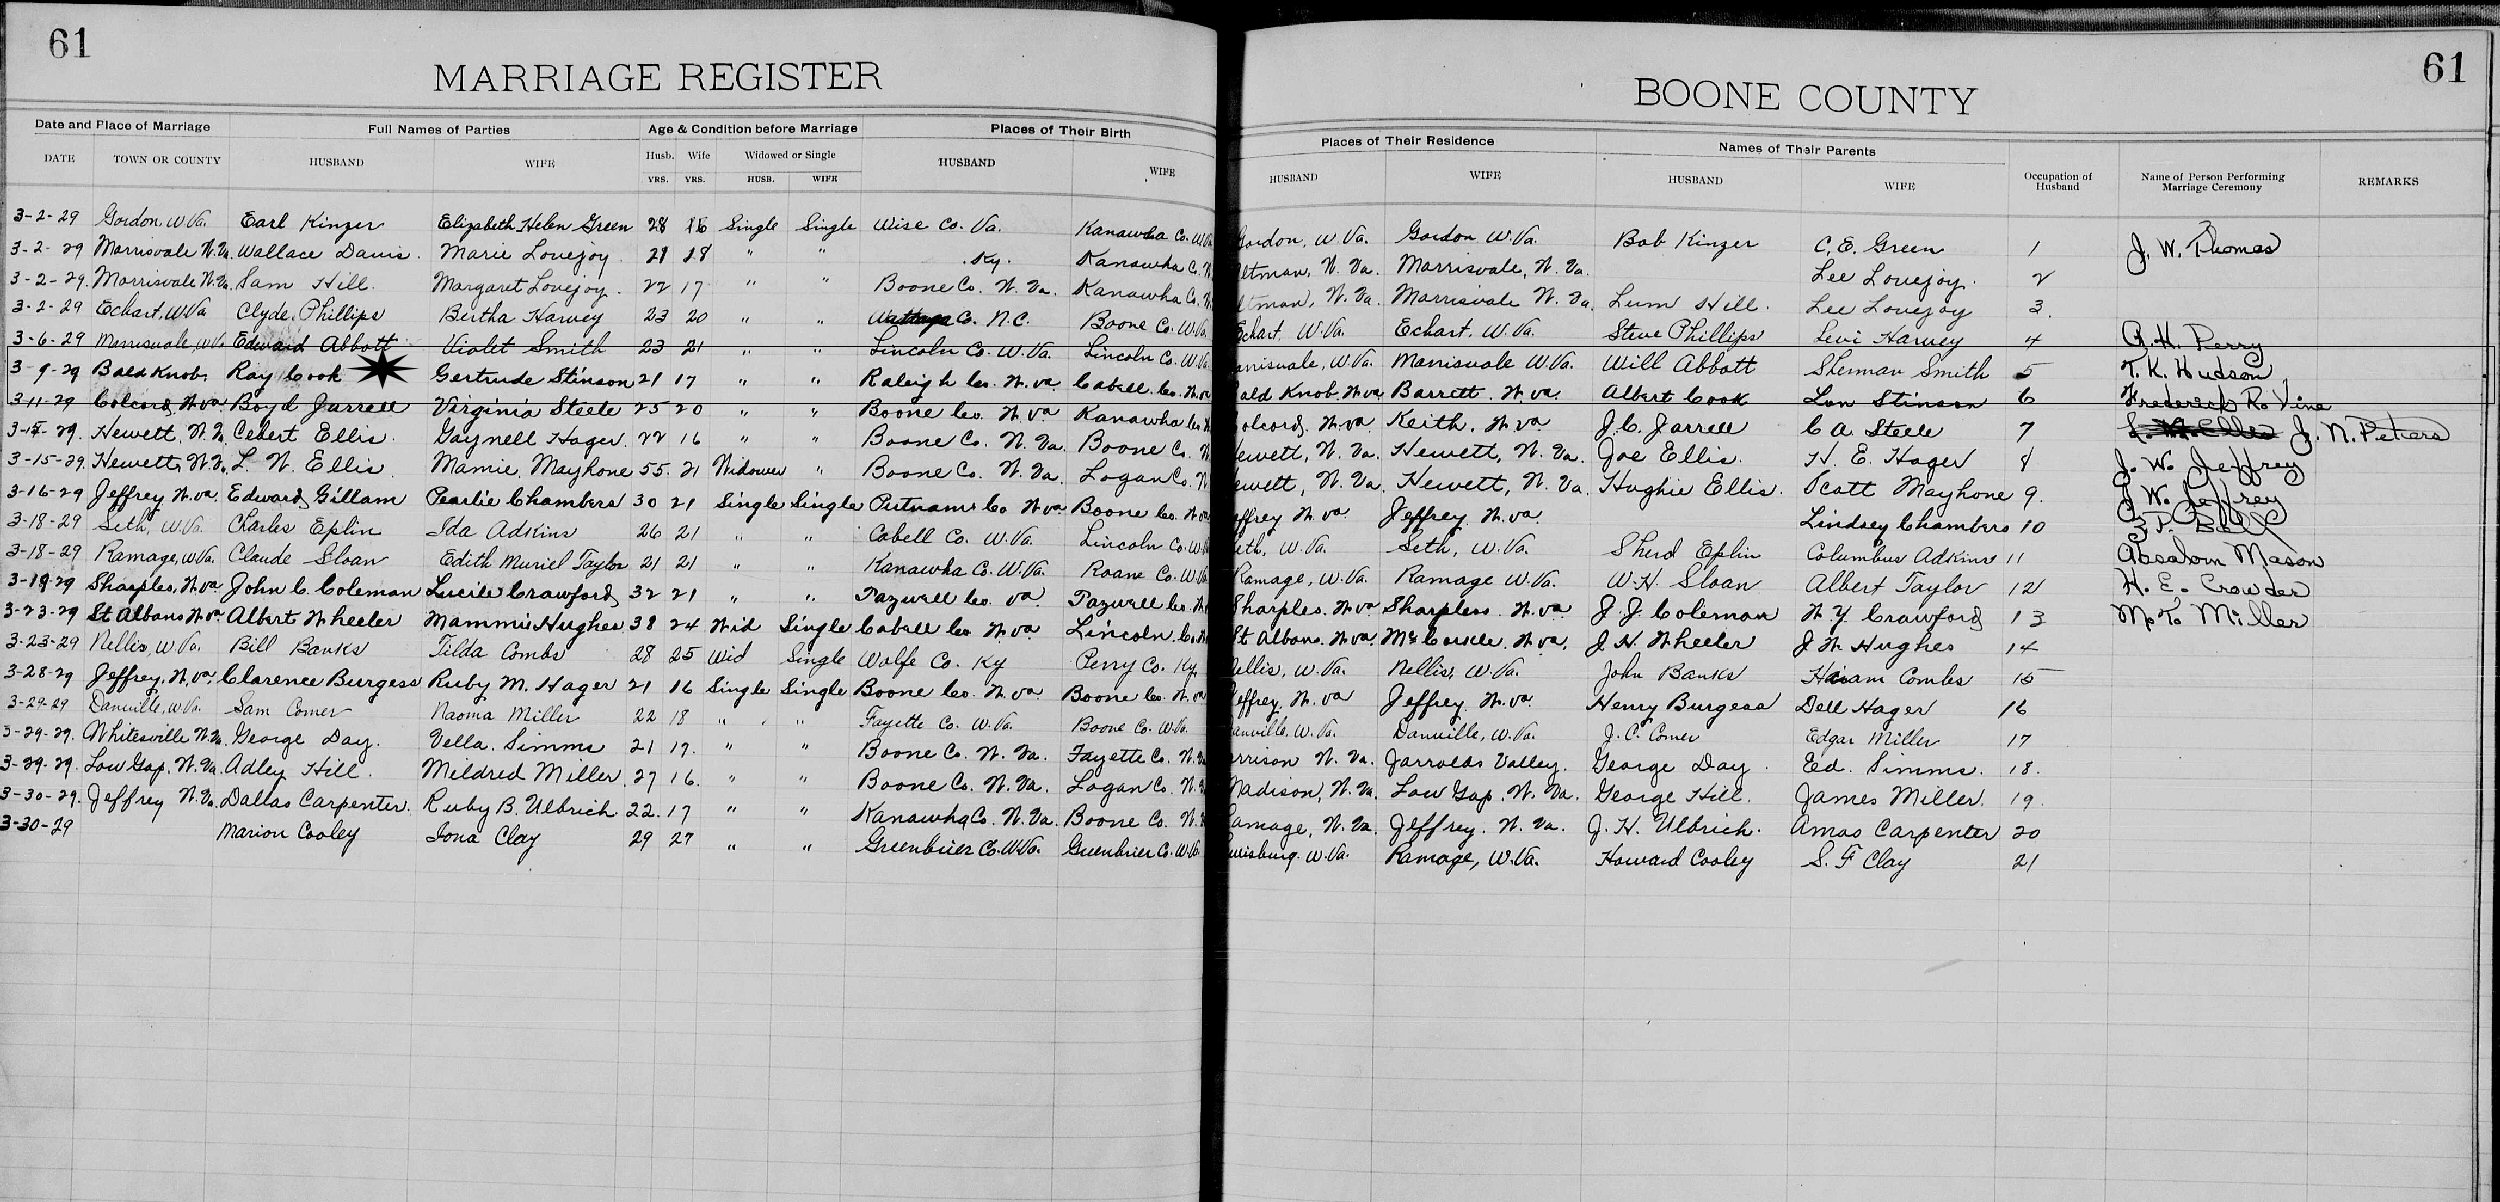 61
61
MARRIAGE REGISTER
BOONE COUNTY
Date and Place of Marriage Full Names of Parties Age & Condition before Marriage Places of Their Birth Places of Their Residence Names of Their Parents
DATE TOWN OR COUNTY HUSBAND WIFE Husb. Wife Widowed or Single HUSBAND WIFE HUSBAND WIFE HUSBAND WIFE Occupation of Husband Name of Person Performing Marriage Ceremony REMARKS
YRS. YRS. HUSB. WIFE
3-2-29 Gordon, W.Va. Earl Kinzer Elizabeth Helen Green 28 16 Single Single Wise Co. Va. Kanawha Co. W.Va. Gordon, W.Va. Gordon W.Va. Bob Kinzer C. E. Green 1 J. W. Thomas
3-2-29 Morrisvale W.Va. Wallace Davis. Marie Lovejoy. 21 18 " " Ky. Kanawha Co. W. ltman, W. Va. Morrisvale, W. Va. Lee Lovejoy. 2
3-2-29. Morrisvale W.Va. Sam Hill. Margaret Lovejoy. 22 17 " " Boone Co. W. Va. Kanawha Co. W. ltman, W. Va. Morrisvale W. Va. Lum Hill. Lee Lovejoy 3.
3-2-29 Echart, W.Va Clyde Phillips Bertha Harvey 23 20 " " Co. N.C. Boone Co. W.Va. Echart W.Va. Echart, W.Va. Steve Phillips Levi Harvey 4 A. H. Perry
3-6-29 Morrisvale, W.Va Edward Abbott Violet Smith 23 21 " " Lincoln Co. W.Va. Lincoln Co. W.Va. orrisvale, W.Va. Morrisvale W.Va. Will Abbott Sherman Smith 5 T. K. Hudson
3-9-29 Bald Knob. Ray Cook Gertrude Stinson 21 17 " " Raleigh Co. W.Va. Cabell Co. W.Va ald Knob. W.Va Barrett. W.Va. Albert Cook Lon Stinson 6 Frederick R. Vine
3-11-29 Colcord, W.Va. Boyd Jarrell Virginia Steele 25 20 " " Boone Co. W.Va Kanawha Co. W. olcord, W.Va Keith, W.Va J. C. Jarrell C A Steele 7 J. N. Peters
3-15-29. Hewett, W.Va. Cebert Ellis. Gaynell Hager. 22 16 " " Boone Co. W. Va. Boone Co. W. ewett, W. Va. Hewett, W. Va. Joe Ellis. H. E. Hager 8 J. W. Jeffrey
3-15-29. Hewett, W.Va. L. W. Ellis Mamie Mayhone 55. 21 Widower " Boone Co. W. Va. Logan Co. W. ewett, W. Va. Hewett, W. Va. Hughie Ellis. Scott Mayhone 9. J. W. Jeffrey
3-16-29 Jeffrey W.Va. Edward Gillam Pearlie Chambers 30 21 Single Single Putnam Co W.Va Boone Co. W.Va effrey W.Va Jeffrey W.Va. Lindsey Chambers 10 Ball
3-18-29 Seth, W.Va. Charles Eplin Ida Adkins 26 21 " " Cabell Co. W.Va. Lincoln Co. W.Va eth, W.Va. Seth, W.Va. Sherd Eplin Columbus Adkins 11 Absalom Mason
3-18-29 Ramage, W.Va. Claude Sloan Edith Muriel Taylor 21 21 " " Kanawha Co. W.Va. Roane Co. W.Va Ramage, W.Va. Ramage W.Va. W. H. Sloan Albert Taylor 12 H. E. Crowder
3-19-29 Sharples, W.Va John C. Coleman Lucile Crawford 32 21 " " Tazwell Co. Va. Tazwell Co. Sharples. W.Va Sharples. W.Va J. J. Coleman W. Y. Crawford 13 M. T. Miller
3-23-29 St Albans W.Va Albert Wheeler Mammie Hughes 38 24 Wid Single Cabell Co W.Va Lincoln Co. W. St Albans. W.Va. McCorkle. W.Va. J. H. Wheeler J. W. Hughes 14
3-23-29 Nellis, W.Va. Bill Banks Tilda Combs 28 25 Wid Single Wolfe Co. Ky Perry Co. Ky. Nellis, W.Va. Nellis, W.Va. John Banks Hiram Combs 15
3-28-29 Jeffrey. W.Va. Clarence Burgess Ruby M. Hager 21 16 Single Single Boone Co. W.Va Boone Co. W.Va effrey. W.Va Jeffrey. W.Va. Henry Burgess Dell Hager 16
3-29-29 Danville, W.Va. Sam Comer Naoma Miller 22 18 " " Fayette Co. W.Va. Boone Co. W.Va. anville, W.Va. Danville, W.Va. J. C. Comer Edgar Miller 17
3-29-29. Whitesville W.Va. George Day. Vella. Simms 21 19. " " Boone Co. W. Va. Fayette Co. W.Va orrison W. Va. Jarrolds Valley. George Day. Ed. Simms. 18.
3-29-29. Low Gap, W.Va. Adley Hill. Mildred Miller. 27 16. " " Boone Co. W. Va. Logan Co. W. Madison, W. Va. Low Gap. W. Va. George Hill. James Miller. 19.
3-30-29. Jeffrey W.Va. Dallas Carpenter. Ruby B. Ulbrich 22. 17 " " Kanawha Co. W. Va. Boone Co. W. Ramage, W. Va. Jeffrey. W. Va. J. H. Ulbrich. Amos Carpenter 20
3-30-29 Marion Cooley Iona Clay 29 27 " " Greenbrier Co. W.Va. Greenbrier Co. W.Va. ewisburg W.Va. Ramage, W.Va. Howard Cooley S. F Clay 21